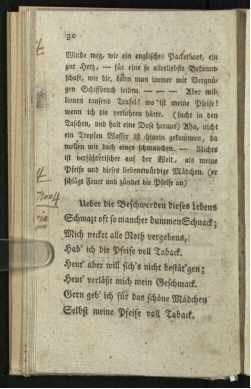 30
Winde weg, wie ein englisches Packetboot, ein
gut Herz, — für eine so allerliebste Bekannt-
schaft, wie die, kann man immer mit Vergnü-
gen Schiffbruch leiden. — — — Aber mil-
lionen tausend Teufel! wo 'ist meine Pfeife!
wenn ich die verlohren hätte. (sucht in den
Taschen, und holt eine Dose heraus) Aha, nicht
ein Tropfen Wasser ist hinein gekommen, da
wollen wir doch eines schmauchen. — Nichts
ist verführerischer auf der Welt, als meine
Pfeife und dieses liebenswürdige Mädchen. (er
schlägt Feuer und zündet die Pfeife an)
Ueber die Beschwerden dieses Lebens
Schwazt oft so mancher dummen Schnack;
Mich necket alle Noth vergebens,
Hab' ich die Pfeife voll Taback.
Heut' aber will sich's nicht bestät'gen;
Heut' verläßt mich mein Geschmack.
Gern geb' ich für das schöne Mädchen
Selbst meine Pfeife voll Taback.